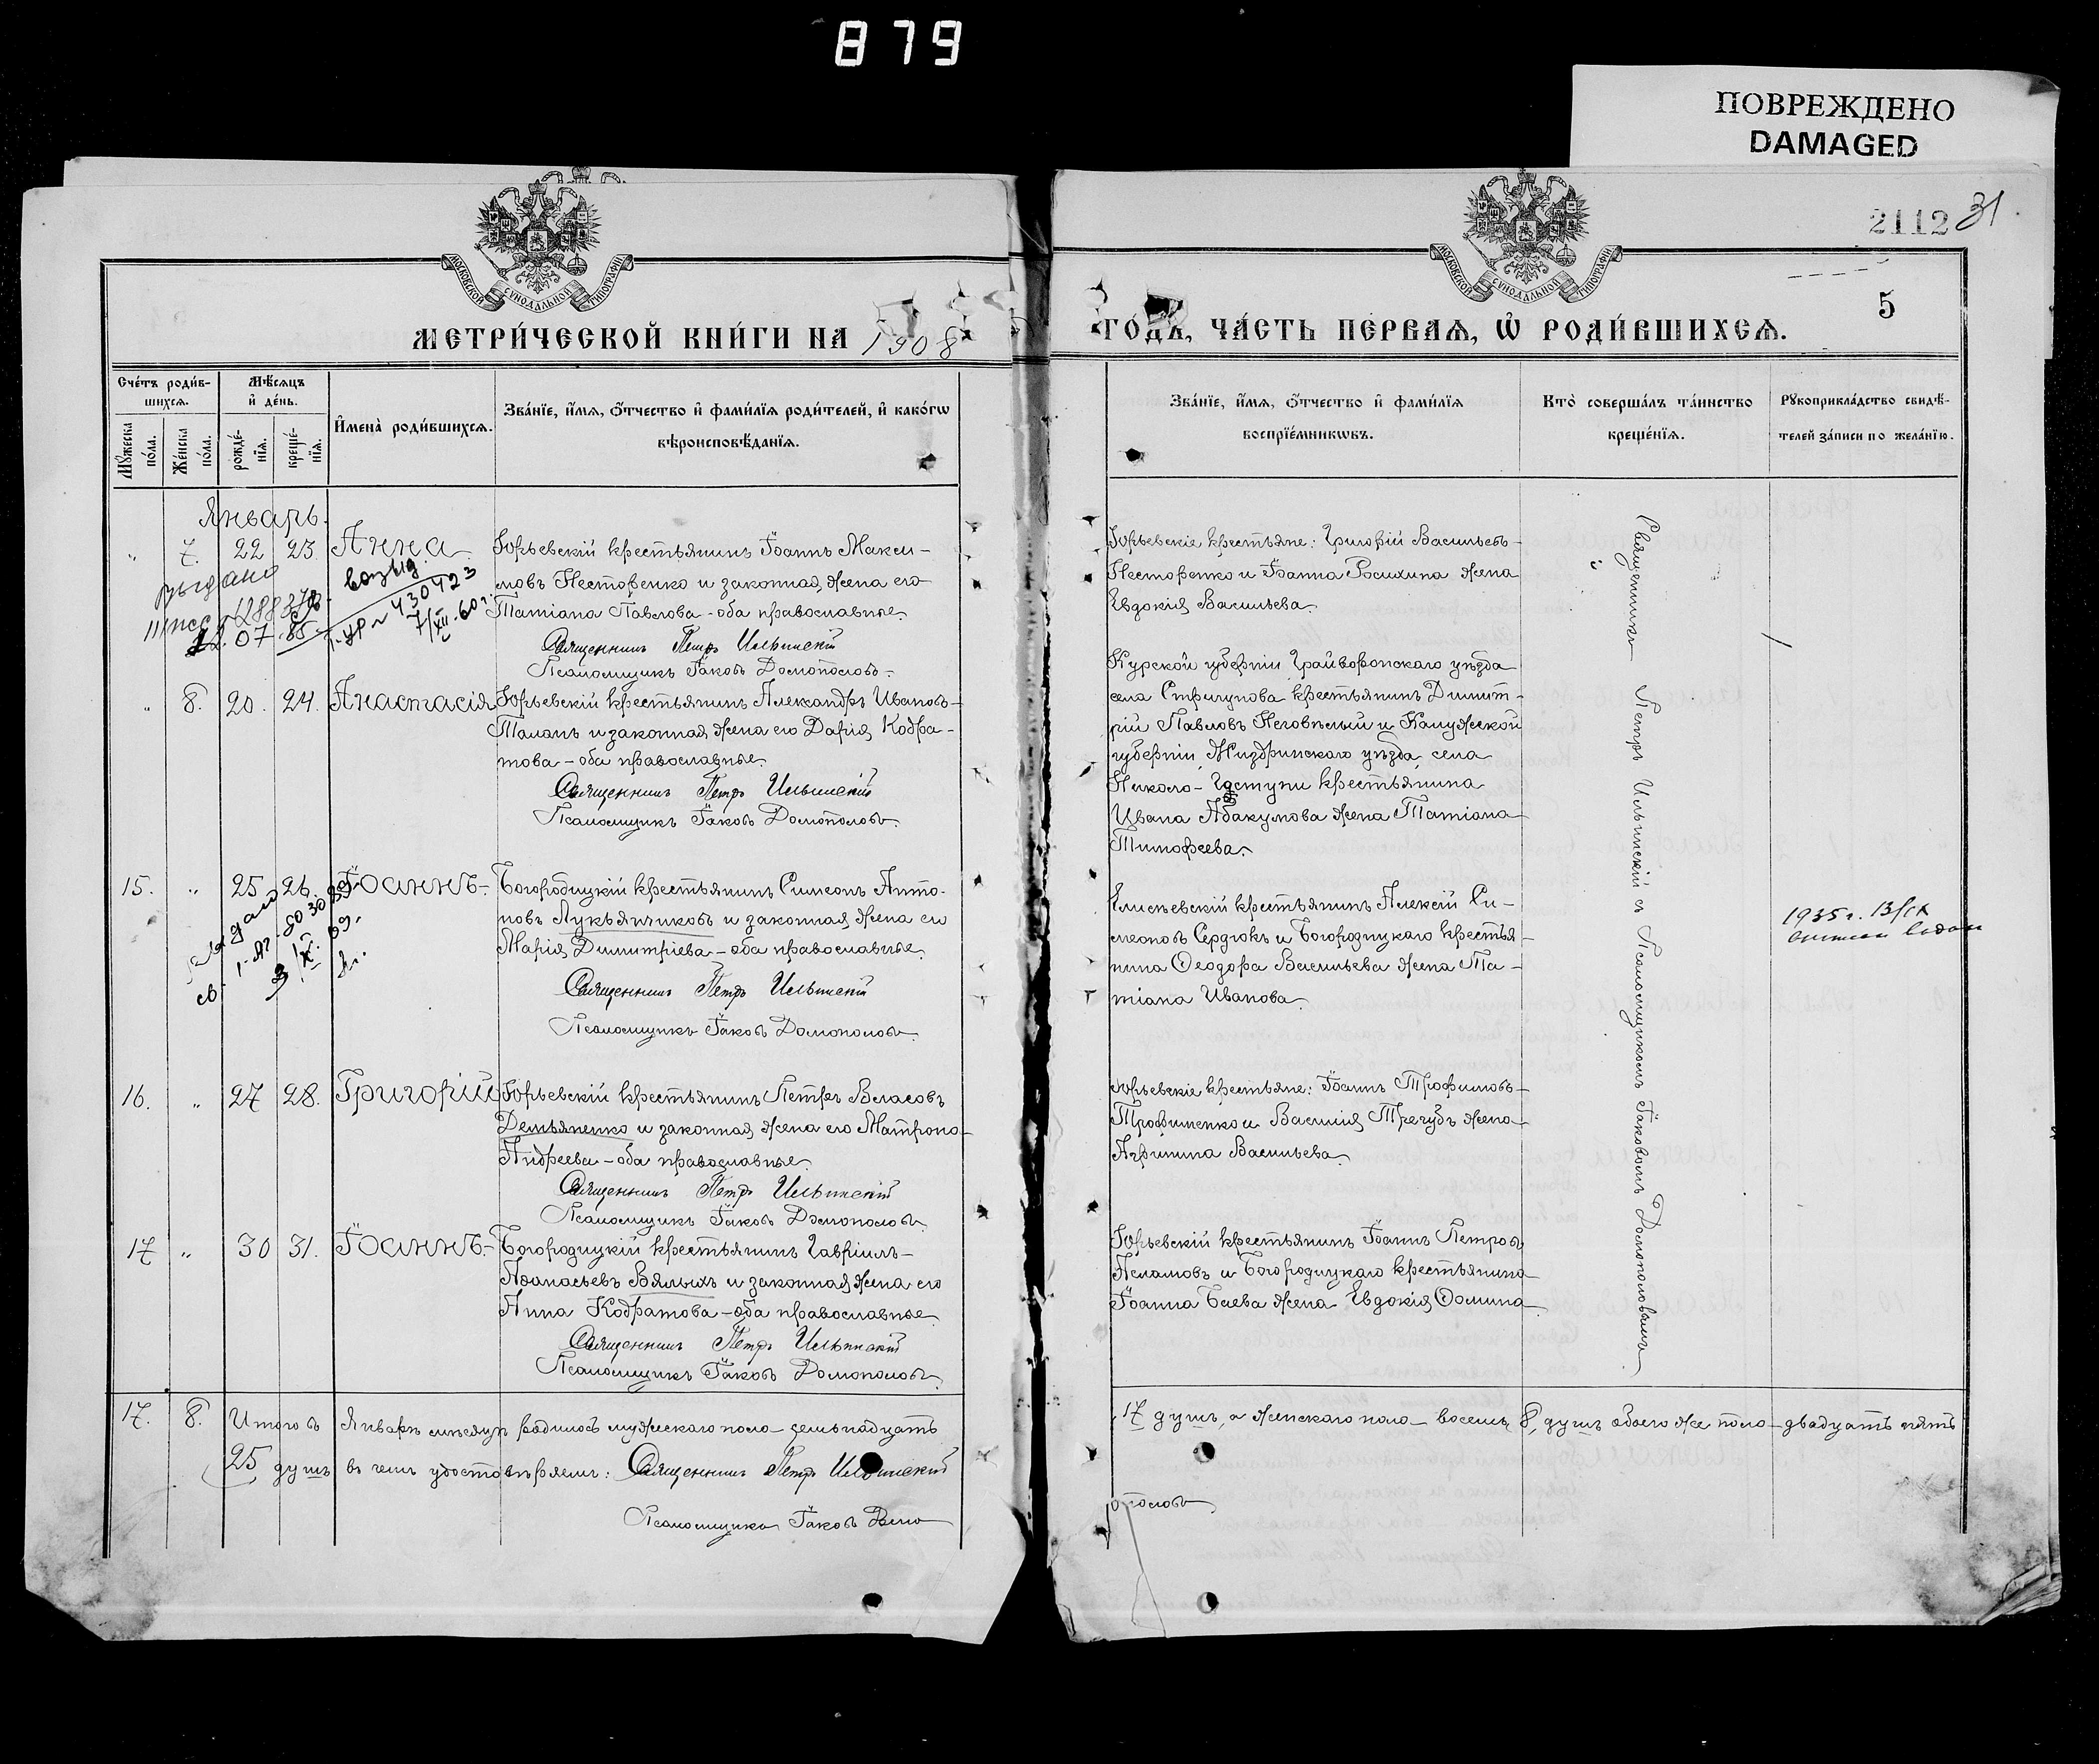 879
ПОВРЕЖДЕНО
DAMAGED
2112 31
МОСКОВСКОЙ СѴНОДАЛЬНОЙ ТИПОГРАФІИ
МОСКОВСКОЙ СѴНОДАЛЬНОЙ ТИПОГРАФІИ
МЕТРИ́ЧЕСКОЙ КНИ́ГИ НА 1908
ГО́ДЪ, ЧА́СТЬ ПЕ́РВАЯ, Ѡ РОДИ́ВШИХСЯ.
5
Сче́тъ роди́вшихся.
Мꙋ́жеска по́ла.
Же́нска по́ла.
Мѣ́сяцъ и де́нь.
рожде́нїя.
креще́нїя.
И҆мена̀ роди́вшихся.
Зва́нїе, и҆́мя, ѻ҆́тчество и҆ фами́лїя роди́телей, и҆ како́гѡ
вѣроисповѣ́данїя.
Зва́нїе, и҆́мя, ѻ҆́тчество и҆ фами́лїя
воспрїе́мникѡвъ.
Кто̀ соверша́лъ та́инство
креще́нїя.
Рꙋкоприкла́дство свидѣ́-
телей за́писи по жела́нїю.
Январь.
„ 7. 22 23. Анна
Юрьевскій крестьянинъ Іоаннъ Макси-
мовъ Нестеренко и законная жена его
Татіана Павлова - оба православные.
Священникъ Петръ Ильинскій
Псаломщикъ Іаковъ Домополовъ.
выдано
07.85
430423
7/XII-60 г.
Юрьевскіе крестьяне: Григорій Васильевъ
Нестеренко и Іоанна Росихина жена
Евдокія Васильева.
„ 8. 20. 24. Анастасія
Юрьевскій крестьянинъ Александръ Ивановъ
Таланъ и законная жена его Дарія Кодра-
това - оба православные.
Священникъ Петръ Ильинскій
Псаломщикъ Іаковъ Домополовъ.
Курской губерніи Грайворонскаго уѣзда
села Стригунова крестьянинъ Димит-
рій Павловъ и Калужской
губерніи Жиздринскаго уѣзда села
Николо- крестьянина
Ивана Абакумова жена Татіана
Тимофеева.
15. „ 25 26. Іоаннъ
Богородицкій крестьянинъ Симеонъ Анто-
новъ Лукьянчиковъ и законная жена его
Марія Димитріева - оба православные.
Священникъ Петръ Ильинскій
Псаломщикъ Іаковъ Домополовъ.
Елисѣевскій крестьянинъ Алексій Си-
меоновъ Сердюкъ и Богородицкаго крестья-
нина Ѳеодора Васильева жена Та-
тіана Иванова.
1935 г. 13/IX
16. „ 27 28. Григорій
Юрьевскій крестьянинъ Петръ Власовъ
Демьяненко и законная жена его Матрона
Андреева - оба православные.
Священникъ Петръ Ильинскій
Псаломщикъ Іаковъ Домополовъ
Юрьевскіе крестьяне: Іоаннъ Трофимовъ
Трофименко и Василія Трегубъ жена
Агрипина Васильева.
17 „ 30 31. Іоаннъ
Богородицкій крестьянинъ Гавріилъ
Аѳанасьевъ Вялыхъ и законная жена его
Анна Кодратова - оба православные
Священникъ Петръ Ильинскій
Псаломщикъ Іаковъ Домополовъ.
Юрьевскій крестьянинъ Іоаннъ Петровъ
и Богородицкаго крестьянина
Іоанна Баева жена Евдокія Ѳомина
Священникъ Петръ Ильинскій съ Псаломщикомъ Іаковомъ Домополовымъ
17. 8. Итого въ Январѣ мѣсяцѣ родилось мужескаго пола семьнадцать
17 душъ, а женскаго пола восемь 8, душъ обоего же пола двадцать пять
25 душъ въ чемъ удостовѣряемъ: Священникъ Петръ Ильинскій
Псаломщикъ Іаковъ Домо
ополовъ